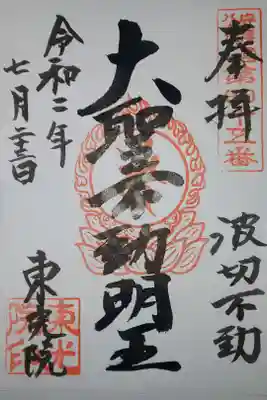 奉拝
波切不動
大聖不動明王
令和二年
七月二十三日
東光院
東光院印